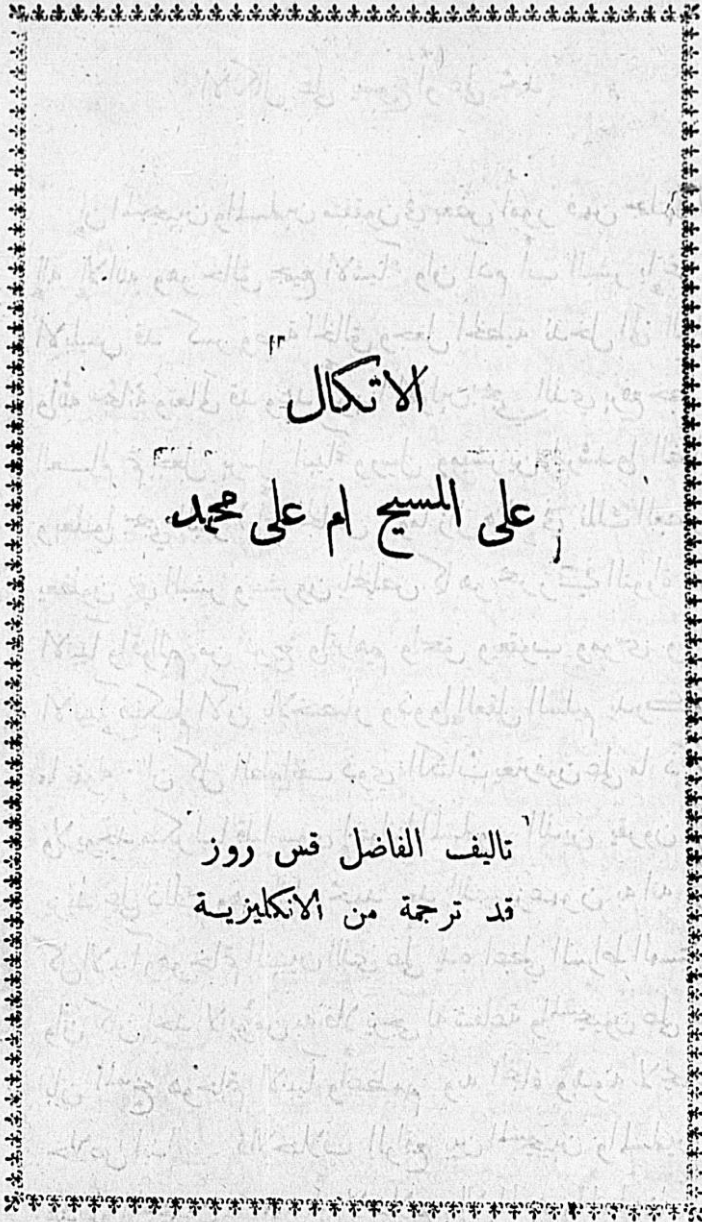 الاتكال
على المسيح ام على محمد
تاليف الفاضل قس روز
قد ترجمة من الانكليزية